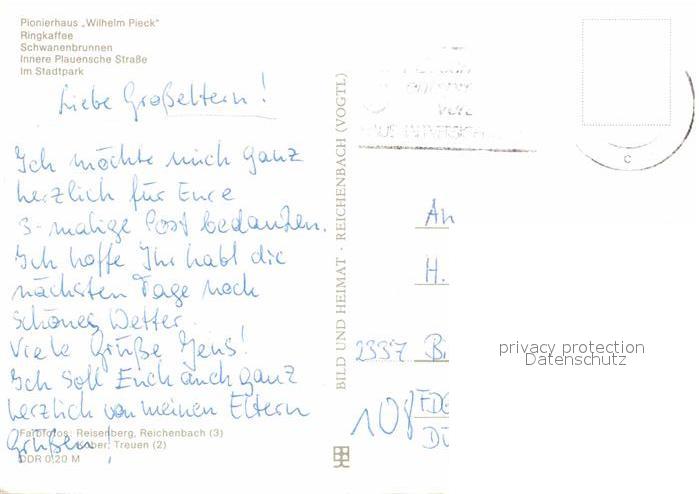 Pionierhaus „Wilhelm Pieck"
Ringkaffee
Schwanenbrunnen
Innere Plauensche Straße
Im Stadtpark
Liebe Großeltern!
Ich möchte mich ganz
herzlich für Eure
3-malige Post bedanken.
Ich hoffe Ihr habt die
nächsten Tage noch
schönes Wetter.
Viele Grüße Jens!
Ich soll Euch auch ganz
herzlich von meinen Eltern
grüßen!
Farbfotos: Reisenberg, Reichenbach (3)
Treuen (2)
DDR 0,20 M
BILD UND HEIMAT · REICHENBACH (VOGTL)
C
An
H.
2337 Bi
108
privacy protection
Datenschutz